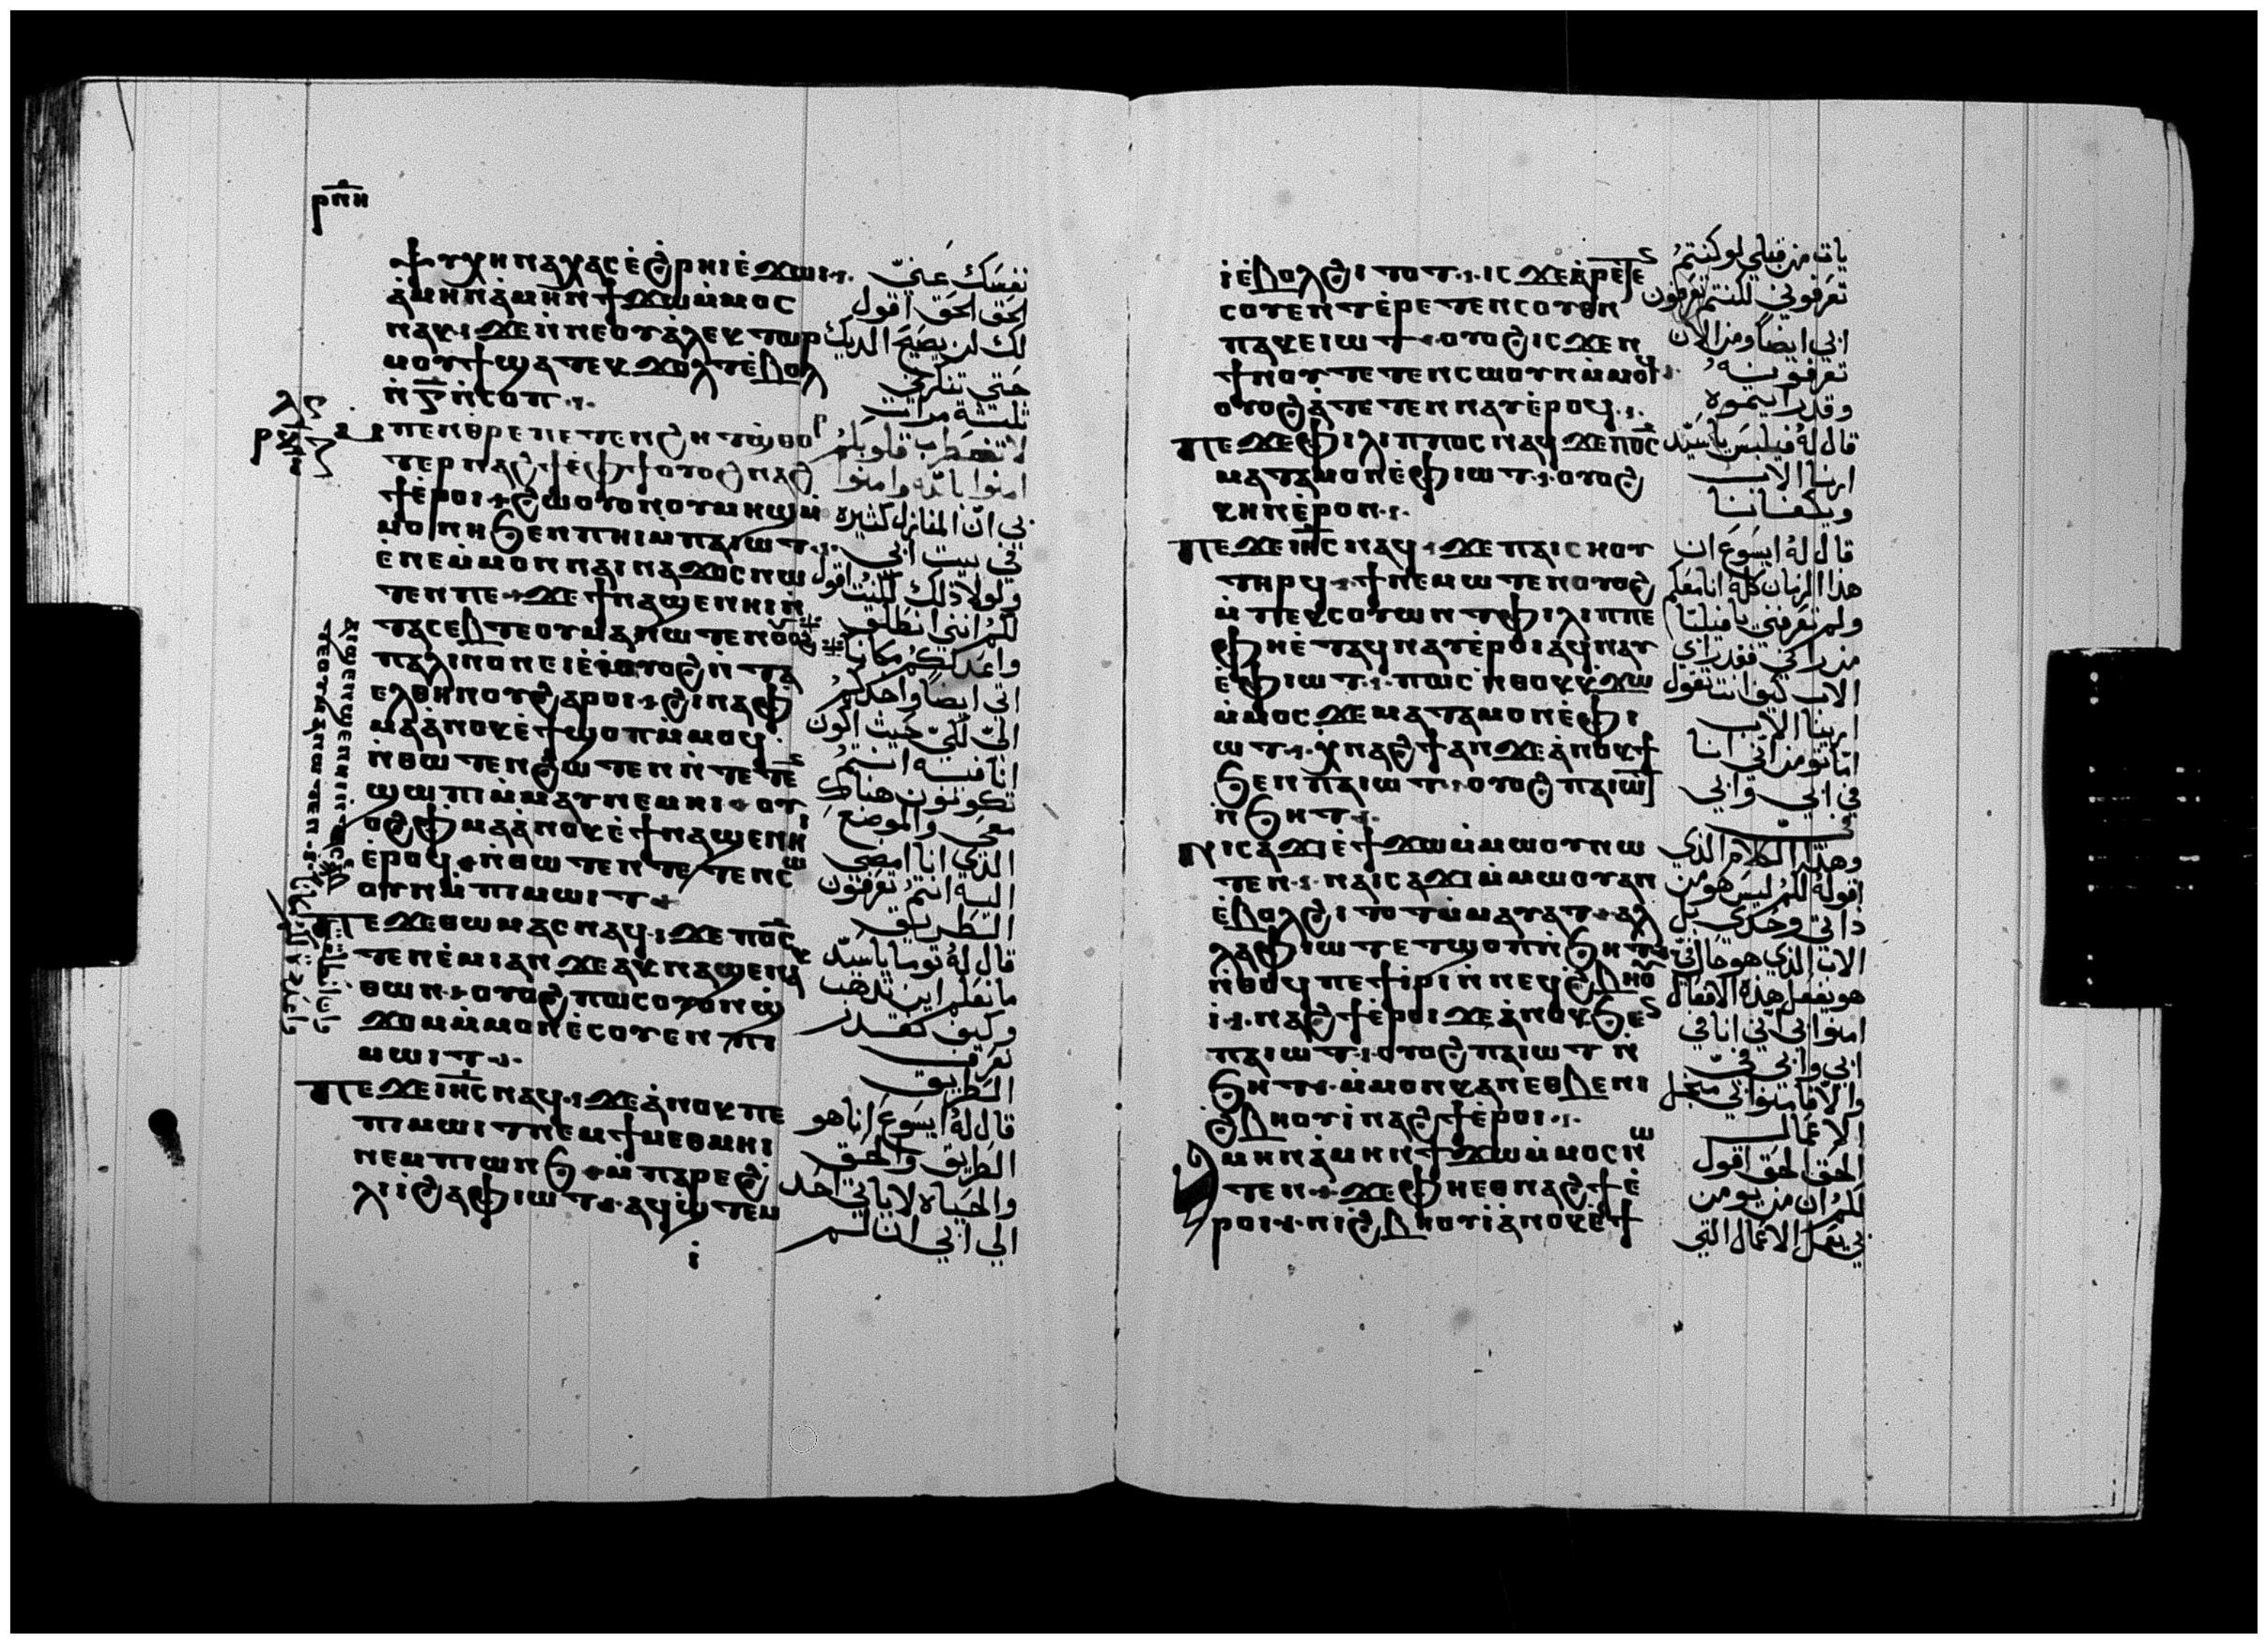 ⲣⲡⲏ
ⲯⲩⲭⲏ ⲛⲁⲭⲁⲥ ⲉ̀ϩ̀ⲣⲏⲓ ⲉ̀ϫⲱⲓ
ⲁ̀ⲙⲏⲛ ⲁ̀ⲙⲏⲛ ϯϫⲱ ⲙ̀ⲙⲟⲥ
ⲛⲁⲕ ϫⲉ ⲛ̀ⲛⲉ ⲟⲩⲁ̀ⲗⲉⲕⲧⲱⲣ
ⲙⲟⲩϯ ϣⲁⲧⲉⲕϫⲟⲗⲧ ⲉ̀ⲃⲟⲗ
ⲛ̀ⲅ̅ ⲛ̀ⲥⲟⲡ
ⲙⲡⲉⲛⲑⲣⲉ ⲡⲉⲧⲉⲛϩⲏⲧ ϣ̀ⲑⲟⲣ
ⲧⲉⲣ ⲛⲁϩϯ ⲉ̀ⲫϯ ⲟⲩⲟϩ ⲛⲁϩ
ϯ ⲉ̀ⲣⲟⲓ ϩⲱ ⲟⲩⲟⲛ ⲟⲩⲙⲏϣ ⲙ̀
ⲙⲟⲛⲏ ϧⲉⲛ ⲡⲏⲓ ⲙ̀ⲡⲁⲓⲱⲧ
ⲉ̀ⲛⲉ ⲙ̀ⲙⲟⲛ ⲛⲁⲓⲛⲁϫⲟⲥ ⲛⲱ
ⲧⲉⲛ ⲡⲉ ϫⲉ ϯⲛⲁϣⲉⲛⲏⲓ ⲛ̀
ⲧⲁⲥⲉⲃⲧⲉ ⲟⲩⲙⲁ ⲛⲱⲧⲉⲛ ⲟⲩⲟϩ
ⲡⲁⲗⲓⲛ ⲟⲛ ⲉⲓⲉ̀ⲓ̀ ⲟⲩⲟϩ ⲛ̀ⲧⲁ
ⲉⲗⲑⲏⲛⲟⲩ ϩⲁⲣⲟⲓ ϩⲓⲛⲁ ⲫ
ⲙⲁ ⲁ̀ⲛⲟⲕ ⲉ̀ϯϣⲟⲡ ⲙ̀ⲙⲟϥ
ⲛ̀ⲑⲱⲧⲉⲛ ϩⲱⲧⲉⲛ ⲛ̀ⲧⲉⲧⲉⲛ
ϣⲱⲡⲓ ⲙ̀ⲙⲁⲩ ⲛⲉⲙⲏⲓ ⲟⲩ
ⲟϩ ⲫⲙⲁ ⲁ̀ⲛⲟⲕ ⲉ̀ϯⲛⲁϣⲉⲛⲏⲓ
ⲉ̀ⲣⲟϥ ⲛ̀ⲑⲱⲧⲉⲛ ⲧⲉⲧⲉⲛⲥⲱ
ⲟⲩⲛ ⲙ̀ⲡⲓⲙⲱⲓⲧ
ⲡⲉϫⲉ ⲑⲱⲙⲁⲥ ⲛⲁϥ ϫⲉ ⲡⲟ̅ⲥ̅
ⲧⲉⲛⲉ̀ⲙⲓ ⲁⲛ ϫⲉ ⲁⲕⲛⲁϣⲉⲛⲁⲕ
ⲑⲱⲛ ⲟⲩⲟϩ ⲡⲱⲥ ⲟⲩⲟⲛ ϣ̀
ϫⲟⲙ ⲙ̀ⲙⲟⲛ ⲉ̀ⲥⲟⲩⲉⲛ ⲡⲓ
ⲙⲱⲓⲧ
ⲡⲉϫⲉ ⲓⲏ̅ⲥ̅ ⲛⲁϥ ϫⲉ ⲁ̀ⲛⲟⲕ ⲡⲉ
ⲡⲓⲙⲱⲓⲧ ⲛⲉⲙ ϯⲙⲉⲑⲙⲏⲓ
ⲛⲉⲙ ⲡⲓⲱⲛϧ ⲙ̀ⲡⲁⲣⲉ ϩ̀
ⲗⲓ ⲓ̀ ϩⲁ ⲫⲓⲱⲧ ⲁϥϣ̀ⲧⲉⲙ
ⲓ̀
ⲁⲓϣⲉⲛ ϣⲉⲛⲏⲓ ⲛ̀ⲧⲁⲥⲉⲃ
ⲧⲉ ⲟⲩⲙⲁ ⲛⲱⲧⲉⲛ
نفسك عنيّ
الحق الحق اقول
لك لن يصيح الديك
حتى تنكرني
ثلثة مرات
لا تضطرب قلوبكم
امنوا بالله وامنوا
بي ان المنازل كثيره
في بيت ابي
ولولا ذلك لكنت اقول
لكم انني انطلق
واعد لكم مكانا
اتي ايضا واخذكم
اليّ لكيّ حيث اكون
انا فيه انتم
تكونون هناك
معي والموضع
الذي انا امضي
اليه انتم تعرفون
الطريق
قال له توما يا سيّد
ما نعلم اين تذهب
وكيف نقدر
نعرف
الطريق
قال له ايسوع انا هو
الطريق والحق
والحياه لا ياتي احد
الي ابي ان لم
ⲓ ⲉ̀ⲃⲟⲗ ϩⲓⲧⲟⲧ ⲓⲥϫⲉ ⲁ̀ⲣⲉⲧⲉⲛ
ⲥⲟⲩⲉⲛⲧ ⲉ̀ⲣⲉⲧⲉⲛⲥⲟⲩⲉⲛ
ⲡⲁⲕⲉⲓⲱⲧ ⲟⲩⲟϩ ⲓⲥϫⲉⲛ
ϯⲛⲟⲩ ⲧⲉⲧⲉⲛⲥⲱⲟⲩⲛ ⲙ̀ⲙⲟϥ
ⲟⲩⲟϩ ⲁ̀ⲧⲉⲧⲉⲛⲛⲁⲩ ⲉ̀ⲣⲟϥ
ⲡⲉϫⲉ ⲫⲓⲗⲓⲡⲡⲟⲥ ⲛⲁϥ ϫⲉ ⲡⲟ̅ⲥ̅
ⲙⲁⲧⲁⲙⲟⲛ ⲉ̀ⲫⲓⲱⲧ ⲟⲩⲟϩ
ⲕⲏⲛ ⲉ̀ⲣⲟⲛ
ⲡⲉϫⲉ ⲓⲏ̅ⲥ̅ ⲛⲁϥ ϫⲉ ⲡⲁⲓⲥⲏⲟⲩ
ⲧⲏⲣϥ ϯⲛⲉⲙⲱⲧⲉⲛ ⲟⲩⲟϩ
ⲙ̀ⲡⲉⲕⲥⲟⲩⲱⲛⲧ ⲫⲓⲗⲓⲡⲡⲉ
ⲫⲏ ⲉ̀ⲧⲁϥⲛⲁⲩ ⲉ̀ⲣⲟⲓ ⲁϥⲛⲁⲩ
ⲉ̀ⲫⲓⲱⲧ ⲡⲱⲥ ⲛ̀ⲑⲟⲕ ⲕ̀ϫⲱ
ⲙ̀ⲙⲟⲥ ϫⲉ ⲙⲁⲧⲁⲙⲟⲛ ⲉ̀ⲫⲓ
ⲱⲧ ⲭ̀ⲛⲁϩϯ ⲁⲛ ϫⲉ ⲁ̀ⲛⲟⲕ ϯ
ϧⲉⲛ ⲡⲁⲓⲱⲧ ⲟⲩⲟϩ ⲡⲁⲓⲱⲧ
ⲛ̀ϧⲏⲧ
ⲛⲓⲥⲁϫⲓ ⲉ̀ϯϫⲱ ⲙ̀ⲙⲱⲟⲩ ⲛⲱ
ⲧⲉⲛ ⲛⲁⲓⲥⲁϫⲓ ⲙ̀ⲙⲱⲟⲩ ⲁⲛ
ⲉ̀ⲃⲟⲗ ϩⲓⲧⲟⲧ ⲙ̀ⲙⲁⲩⲁⲧ ⲁⲗ
ⲗⲁ ⲫⲓⲱⲧ ⲉⲧϣⲟⲡ ⲛ̀ϧⲏⲧ
ⲛ̀ⲑⲟϥ ⲡⲉⲧⲓ̀ⲣⲓ ⲛ̀ⲛⲉϥϩ̀ⲃⲏⲟⲩ
ⲓ̀ ⲛⲁϩϯ ⲉ̀ⲣⲟⲓ ϫⲉ ⲁ̀ⲛⲟⲕ ϧⲉⲛ
ⲡⲁⲓⲱⲧ ⲟⲩⲟϩ ⲡⲁⲓⲱⲧ ⲛ̀
ϧⲏⲧ ⲙ̀ⲙⲟⲛ ⲕⲁⲛ ⲉⲑⲃⲉ ⲛⲓ
ϩ̀ⲃⲏⲟⲩⲓ̀ ⲛⲁϩϯ ⲉ̀ⲣⲟⲓ
ⲁⲙⲏⲛ ⲁ̀ⲙⲏⲛ ϯϫⲱ ⲙ̀ⲙⲟⲥ ⲛⲱ
ⲧⲉⲛ ϫⲉ ⲫⲏ ⲉⲑⲛⲁϩϯ ⲉ̀
ⲣⲟⲓ ⲛⲓϩ̀ⲃⲏⲟⲩⲓ̀ ⲁ̀ⲛⲟⲕ ⲉ̀ϯ
يات من قبلي لو كنتم
تعرفوني لكنتم تعرفون
ابي ايضا ومن الان
تعرفونه
وقد رايتموه
قال له فيلبس يا سيّد
ارنا الاب
ويكفانا
قال له ايسوع ان
هذا الزمان كله انا معكم
ولم تعرفني يا فيلبا
من راني فقد راي
الاب كيف انت تقول
ارينا الاب
اما تومن اني انا
في ابي وابي
فيّ
وهذا الكلام الذي
اقوله لكم ليس هو من
ذاتي وحدي بل
الاب الذي هو حال فيّ
هو يفعل هذه الافعال
امنوا بي اني انا في
ابي وابي فيّ
والا فامنوا بي من اجل
الاعمال
الحق الحق اقول
لكم ان من يومن
بي يعمل الاعمال التي